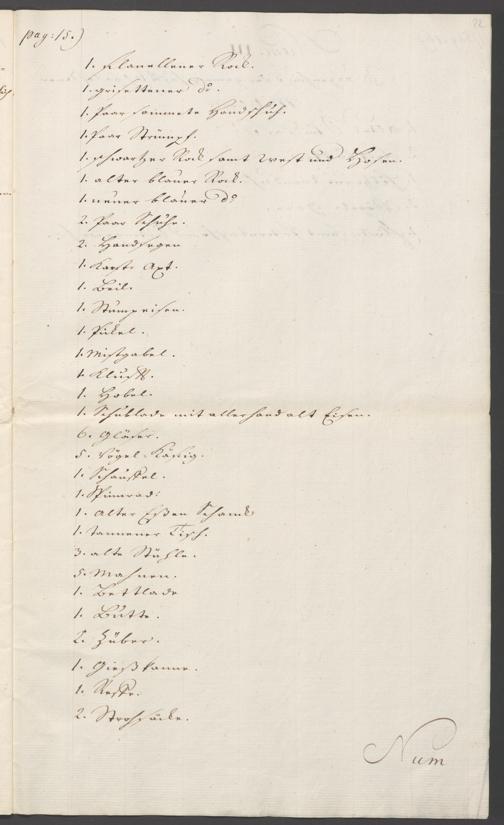 22
pag: 15.)
1. flanellener Rock.
1. grisettener do.
1. Paar sammete Handschuh.
1. Paar Strümpf.
1. schwartzer Rock samt West und Hosen.
1. alter blauer Rock.
1. neuer blauer do
2. Paar Schuhe.
2. Handsegen
1. Axt.
1. Beil.
1. Stümpeisen.
1. Pikel.
1. Mistgabel.
1.
1. Hobel.
1. Schublade mit allerhand alt Eisen.
6. Gläser.
5. Vögel Käfig.
1. Schaufel.
1. Spinnrad:
1. alter Schank
1. tannener Tisch.
3. alte Stühle.
5. Mahnen.
1. Bettlade
1. Bütte.
2. Züber.
1. Gießkanne.
1.
2. Strohsäcke.
Num